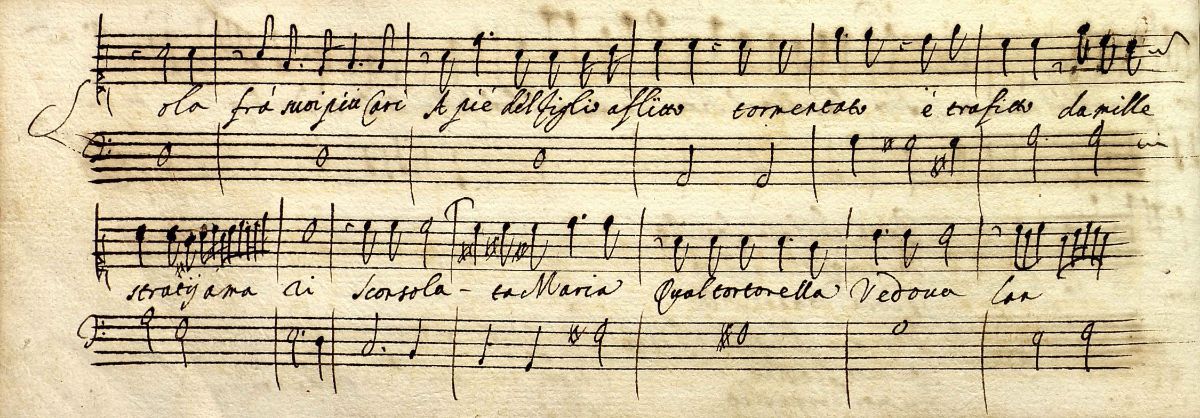 ola frá suoi più Cari A piè del figlio aflitto tormentato è trafitto da mille
stratij ama ri Sconsola - ta Maria Qual tortorella Vedoua Lan